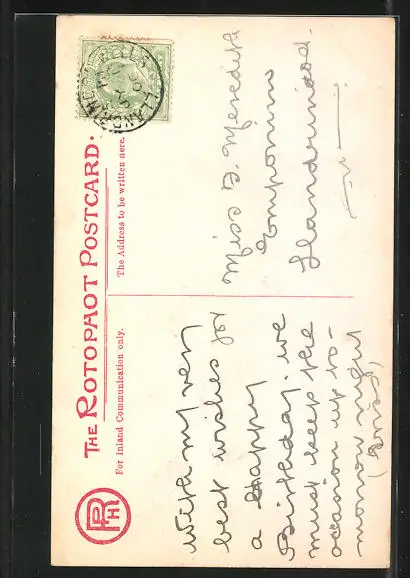 THE ROTOPHOT POSTCARD.
For Inland Communication only.
The Address to be written here.
LLANDRINDOD WELLS
With my very
best wishes for
a Happy
Birthday. we
must keep the
occasion up to-
morrow night
Miss Meredith
Llandrindod.